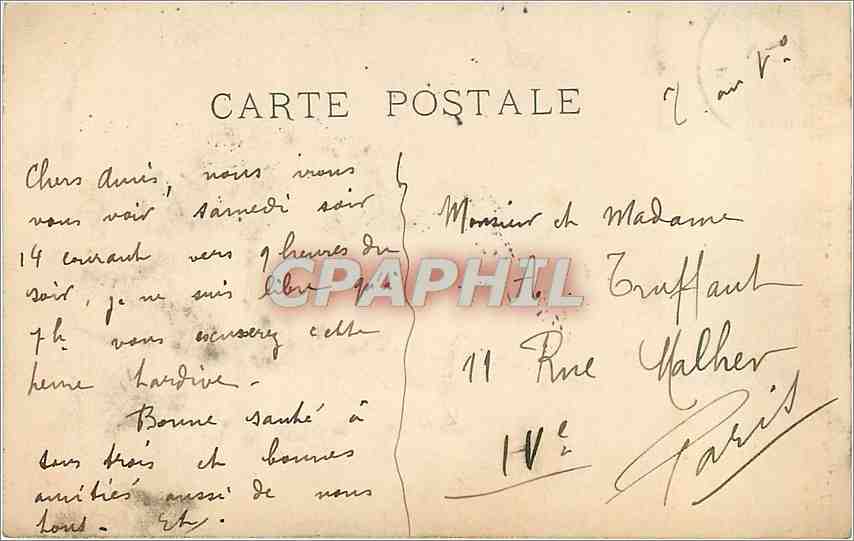 CARTE POSTALE
au V°
Chers Amis, nous irons
vous voir samedi soir
14 courant vers 9 heures du
soir, je ne suis libre qu'à
7h vous excuserez cette
heure tardive.
Bonne santé à
tous trois et bonnes
amitiés aussi de nous
tous.
Monsieur et Madame
A. Truffaut
11 Rue Malher
IVe
Paris
CPAPHIL